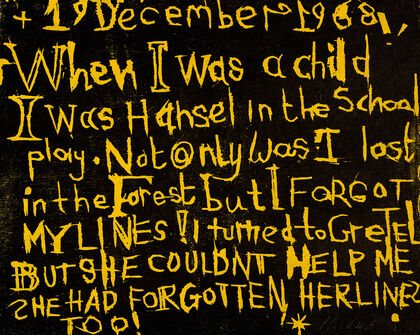 + 19 December 1968!,
When I was a child
I was Hansel in the School
play. Not only was I lost
in the Forest but I FORGOT
MY LINES! I turned to GreTEL
BUT SHE COULDNT HELP ME
SHE HAD FORGOTTEN HER LINES
TOO! !*